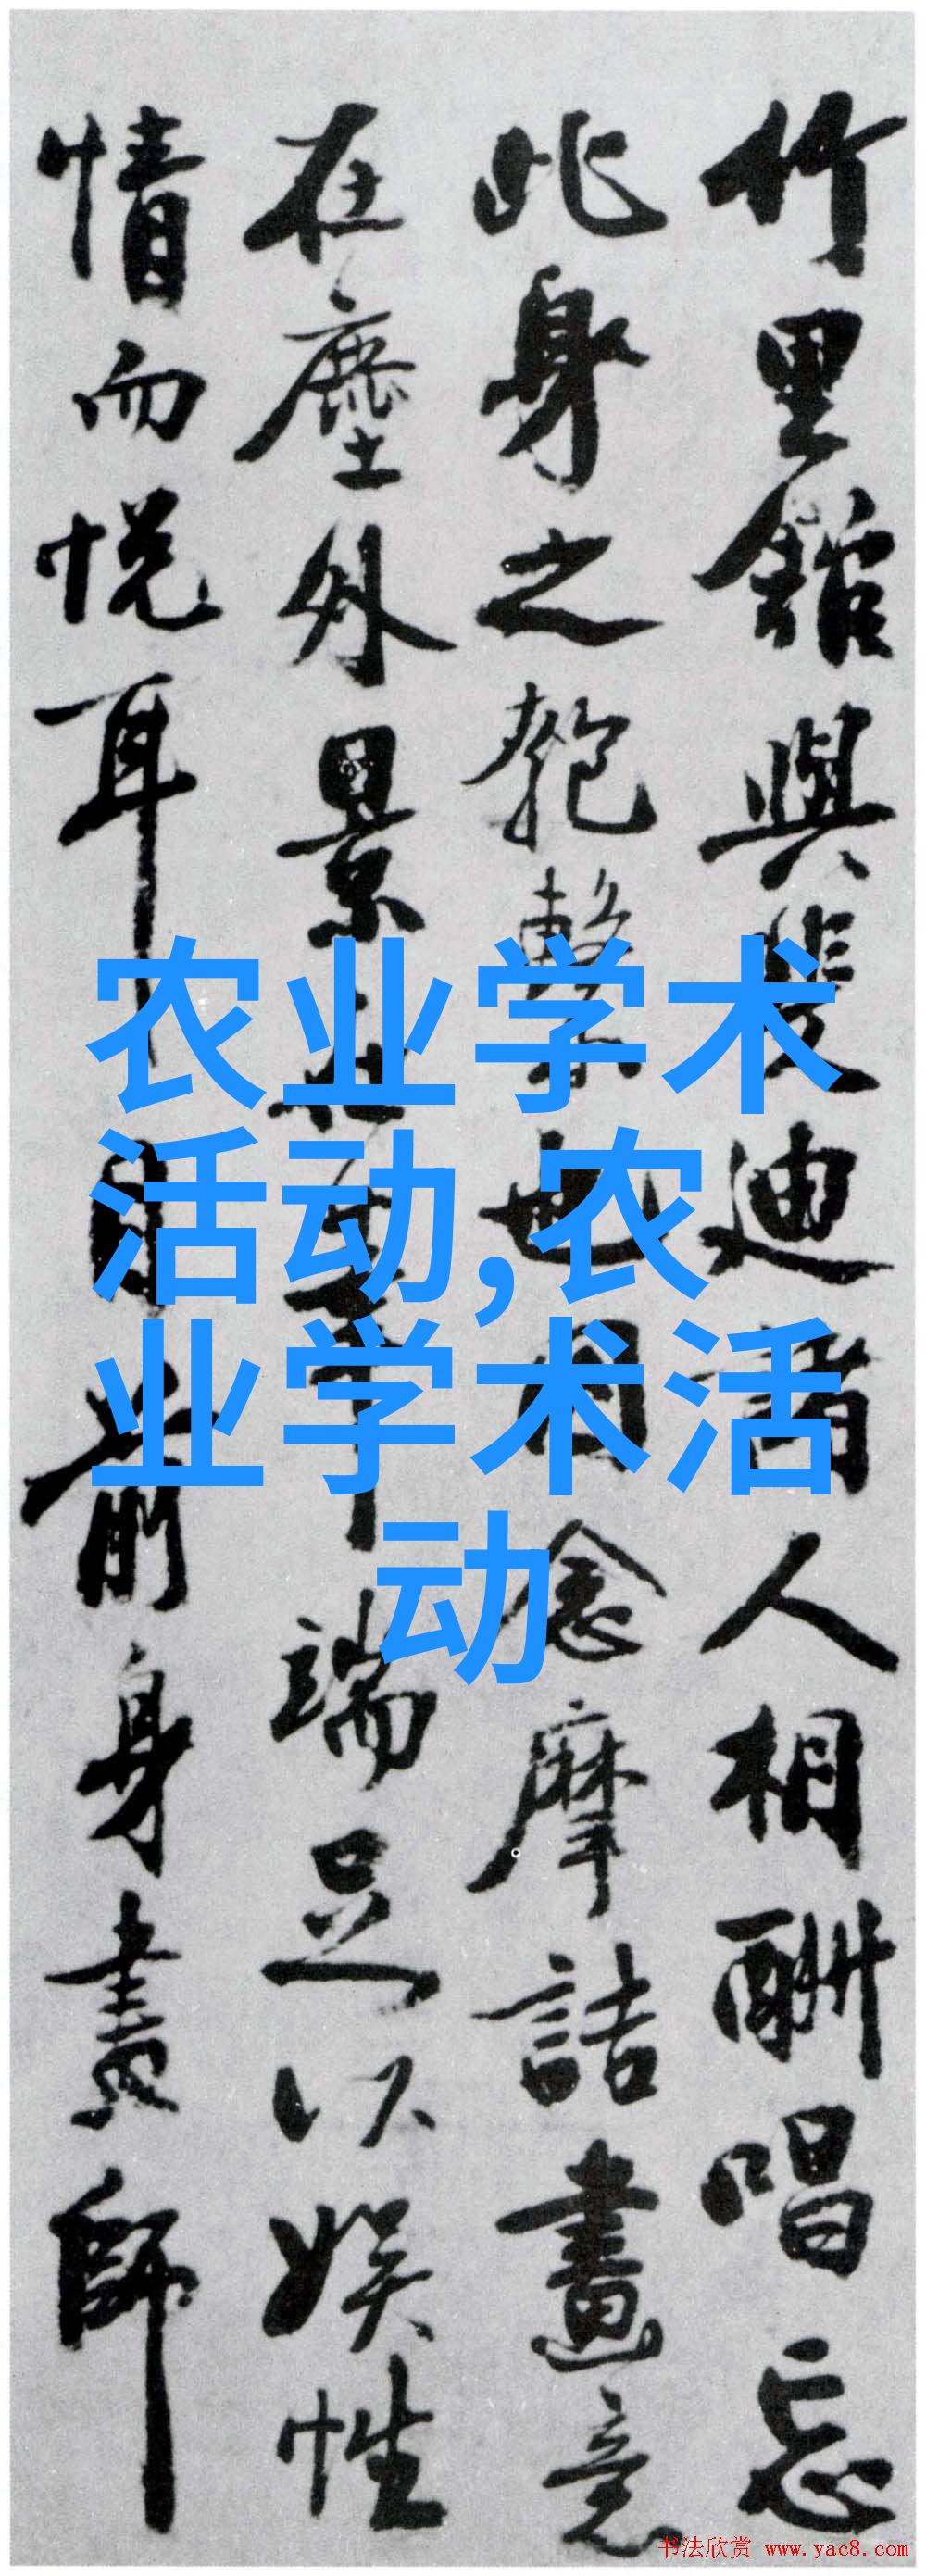 竹里館與裴迪諸人相酬唱忘
此身之匏繫也因念摩詰畫意
在塵外景在筆端足以娛性
情而悅耳目前身畫師
农业学术
活动,农
业学术活
动
书法欣赏 www.yac8.com